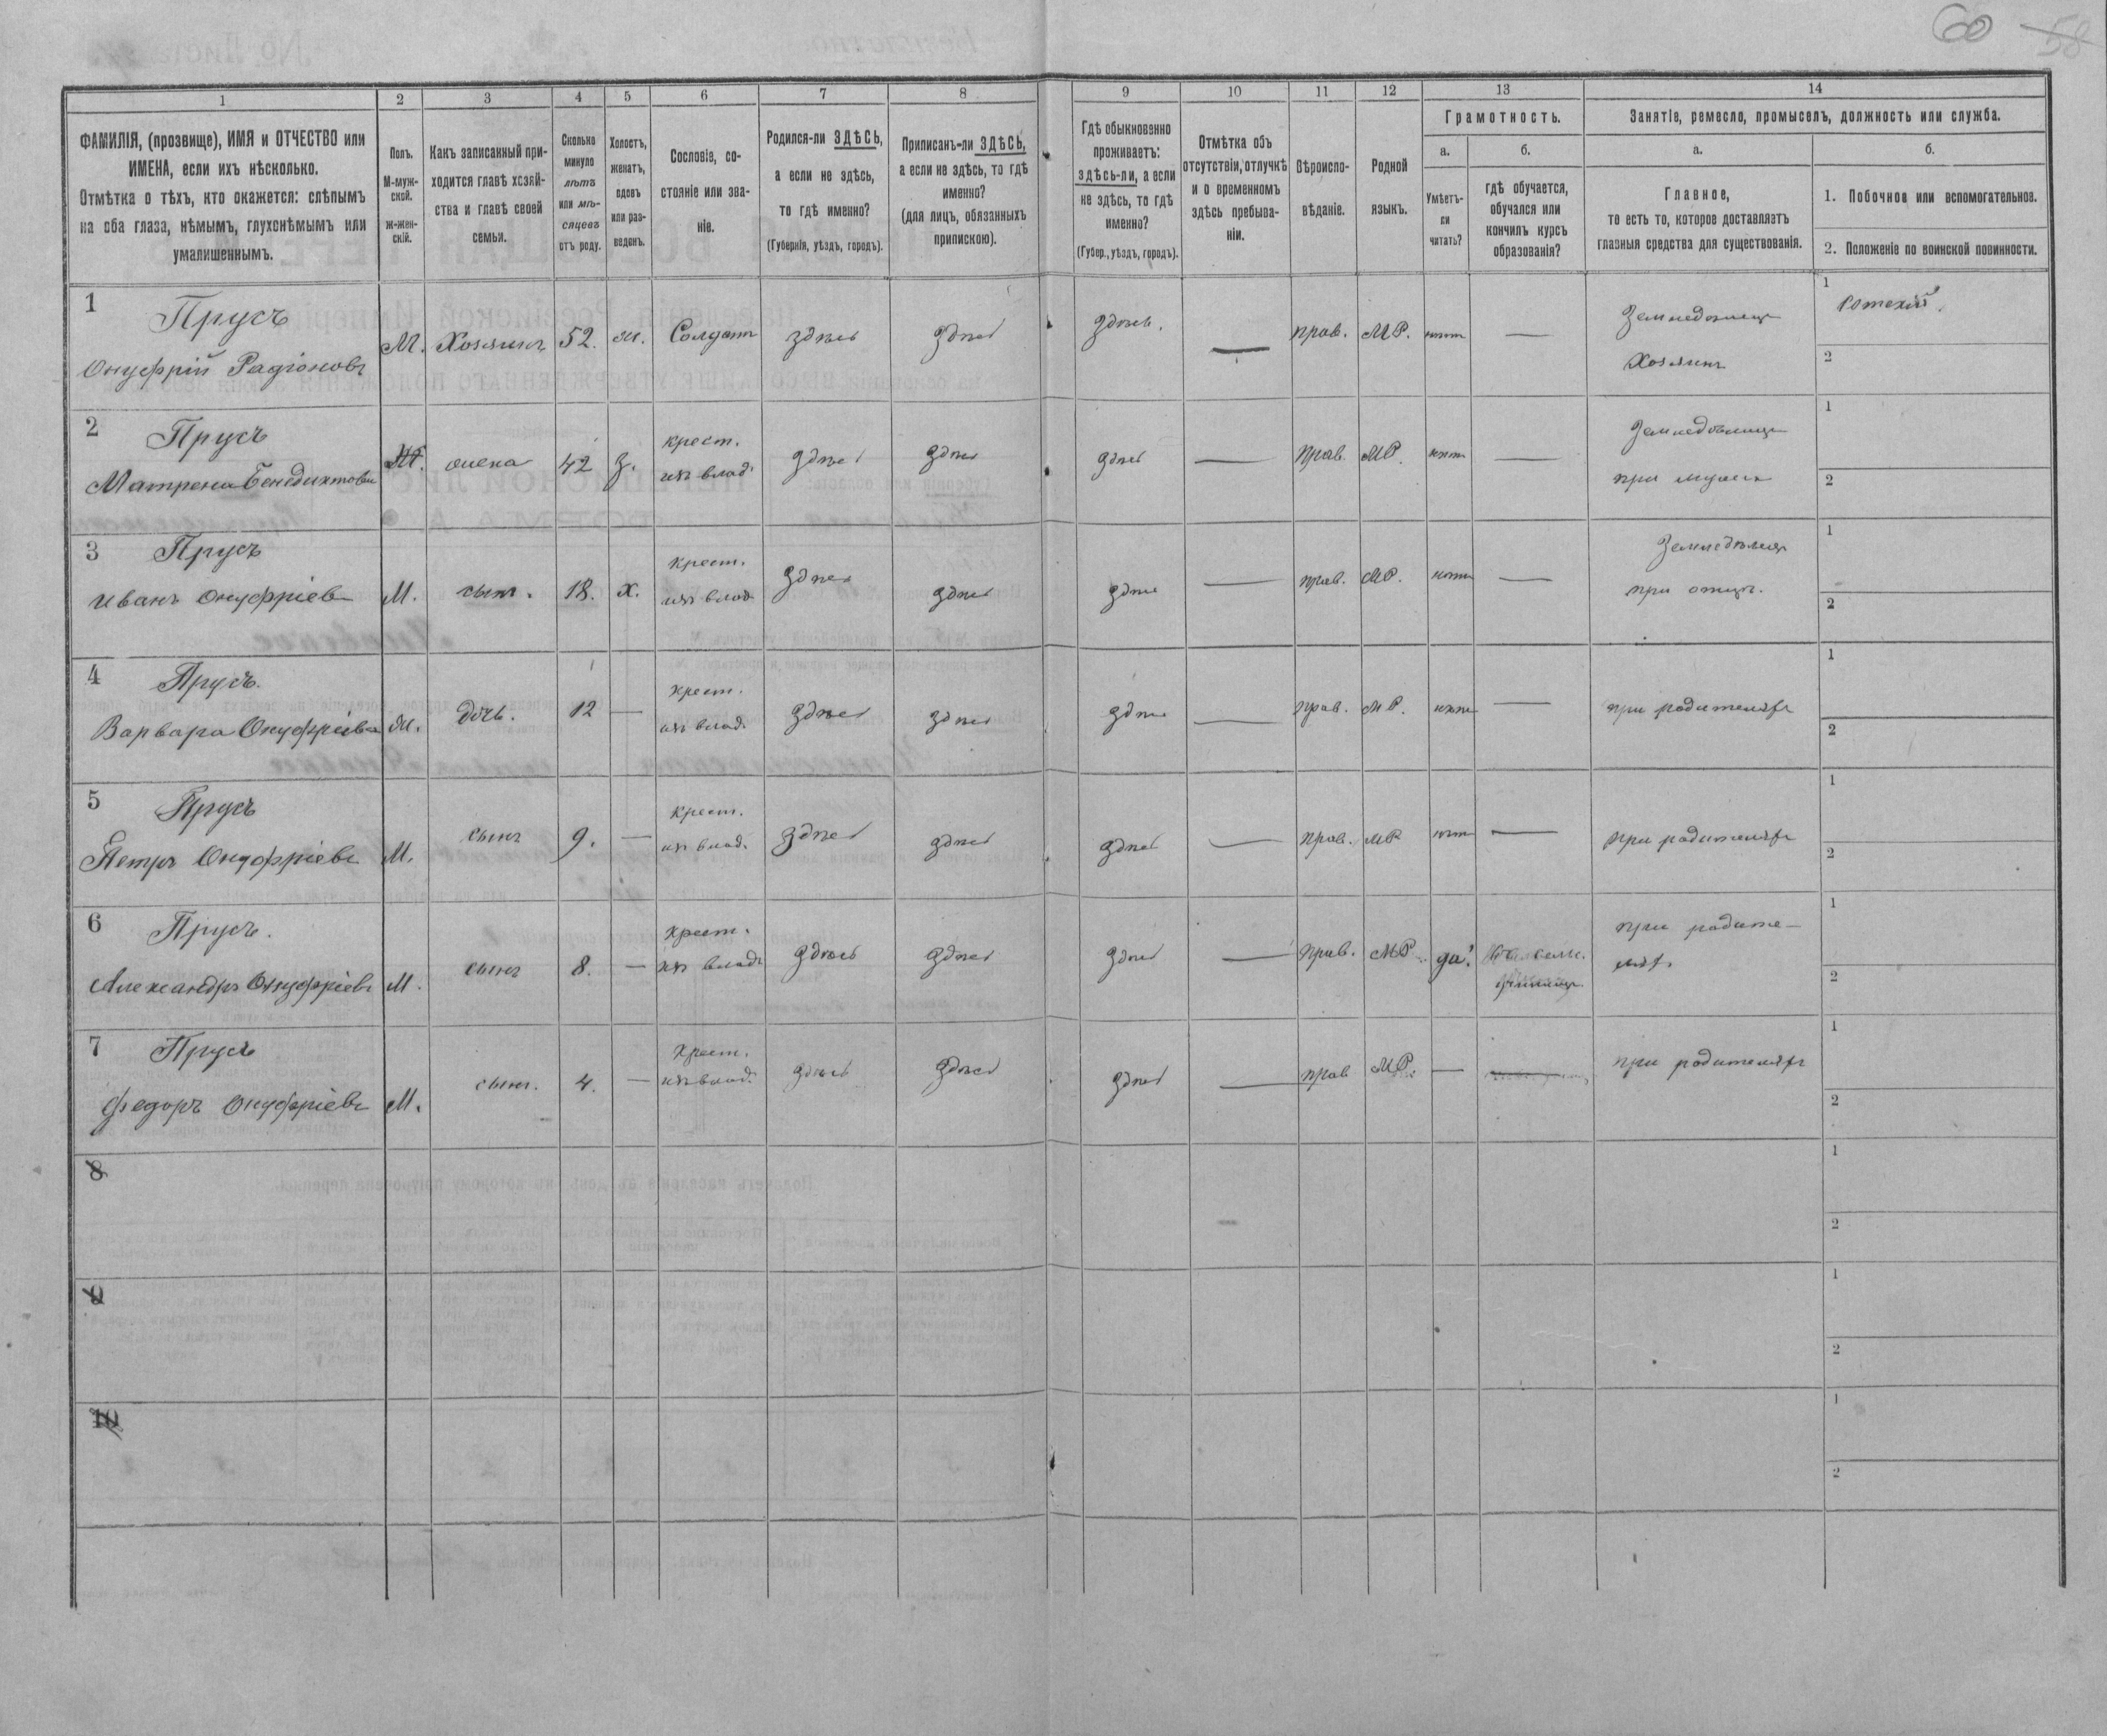 60 58
1 2 3 4 5 6 7 8 9 10 11 12 13 14
ФАМИЛІЯ, (прозвище), ИМЯ и ОТЧЕСТВО или
ИМЕНА, если ихъ нѣсколько.
Отмѣтка о тѣхъ, кто окажется: слѣпымъ
на оба глаза, нѣмымъ, глухонѣмымъ или
умалишеннымъ.
Полъ.
М-муж-
ской.
Ж-жен-
скій.
Какъ записанный при-
ходится главѣ хозяй-
ства и главѣ своей
семьи.
Сколько
минуло
лѣтъ
или мѣ-
сяцевъ
отъ роду.
Холостъ,
женатъ,
вдовъ
или раз-
веденъ.
Сословіе, со-
стояніе или зва-
ніе.
Родился-ли ЗДѢСЬ,
а если не здѣсь,
то гдѣ именно?
(Губернія, уѣздъ, городъ).
Приписанъ-ли ЗДѢСЬ,
а если не здѣсь, то гдѣ
именно?
(для лицъ, обязанныхъ
припискою).
Гдѣ обыкновенно
проживаетъ:
здѣсь-ли, а если
не здѣсь, то гдѣ
именно?
(Губер., уѣздъ, городъ).
Отмѣтка объ
отсутствіи, отлучкѣ
и о временномъ
здѣсь пребыва-
ніи.
Вѣроиспо-
вѣданіе.
Родной
языкъ.
Грамотность.
а.
Умѣетъ-
ли
читать?
б.
гдѣ обучается,
обучался или
кончилъ курсъ
образованія?
Занятіе, ремесло, промыселъ, должность или служба.
а.
Главное,
то есть то, которое доставляетъ
главныя средства для существованія.
б.
1. Побочное или вспомогательное.
2. Положеніе по воинской повинности.
1 Прусъ
Онуфрій Радіоновъ М. Хозяинъ 52. ж. Солдат здѣсь здѣсь здѣсь. — прав. МР. нѣт —
Земледѣлец
Хозяинъ
1
2
2 Прусъ
Матрена Бенедиктова жена 42 З.
крест.
изъ влад. здѣсь здѣсь здѣсь — прав. МР. нѣт —
Земледѣлец
при мужѣ
1
2
3 Прусъ
Иванъ Онуфріевъ М. сынъ. 18. Х.
крест.
изъ влад. здѣсь здѣсь здѣсь — прав. МР. нѣт —
Земледѣлец
при отцѣ.
1
2
4 Прусъ.
Варвара Онуфріева Ж. дочь. 12 —
крест.
изъ влад. здѣсь здѣсь здѣсь — прав. МР. нѣт —
при родителяхъ
1
2
5 Прусъ
Петръ Онуфріевъ М. сынъ 9. —
крест.
изъ влад. здѣсь здѣсь здѣсь — прав. МР нѣт —
при родителяхъ
1
2
6 Прусъ.
Александръ Онуфріевъ М. сынъ 8. —
крест.
изъ влад. здѣсь здѣсь здѣсь — прав. МР. да
училищѣ
при родите-
ляхъ
1
2
7 Прусъ
Федоръ Онуфріевъ М. сынъ. 4. —
крест.
изъ влад. здѣсь здѣсь здѣсь — прав МР. — —
при родителяхъ
1
2
8
1
2
9
1
2
10
1
2